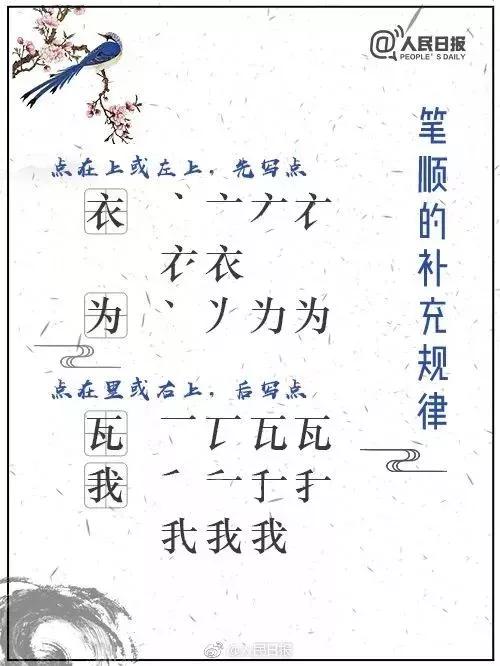 @人民日报
PEOPLE'S DAILY
笔顺的补充规律
点在上或左上，先写点
衣 丶 亠
衣
为 丶 为 为
点在里或右上，后写点
瓦 一 瓦 瓦
我 我 我
@人民日报